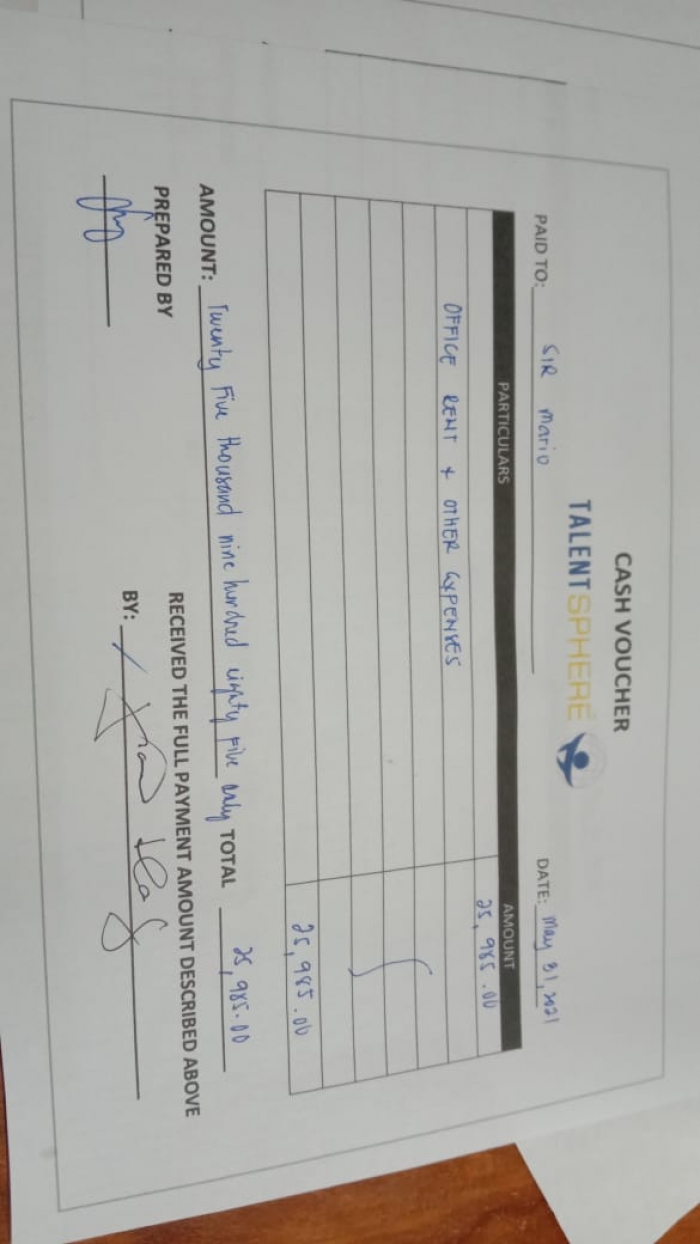 CASH VOUCHER
TALENT SPHERE
PAID TO: SIR Mario DATE: May 31, 2021
PARTICULARS AMOUNT
25,985.00
OFFICE RENT & OTHER EXPENSES
25,985.00
AMOUNT: Twenty Five thousand nine hundred eighty five only TOTAL 25,985.00
PREPARED BY RECEIVED THE FULL PAYMENT AMOUNT DESCRIBED ABOVE
BY: